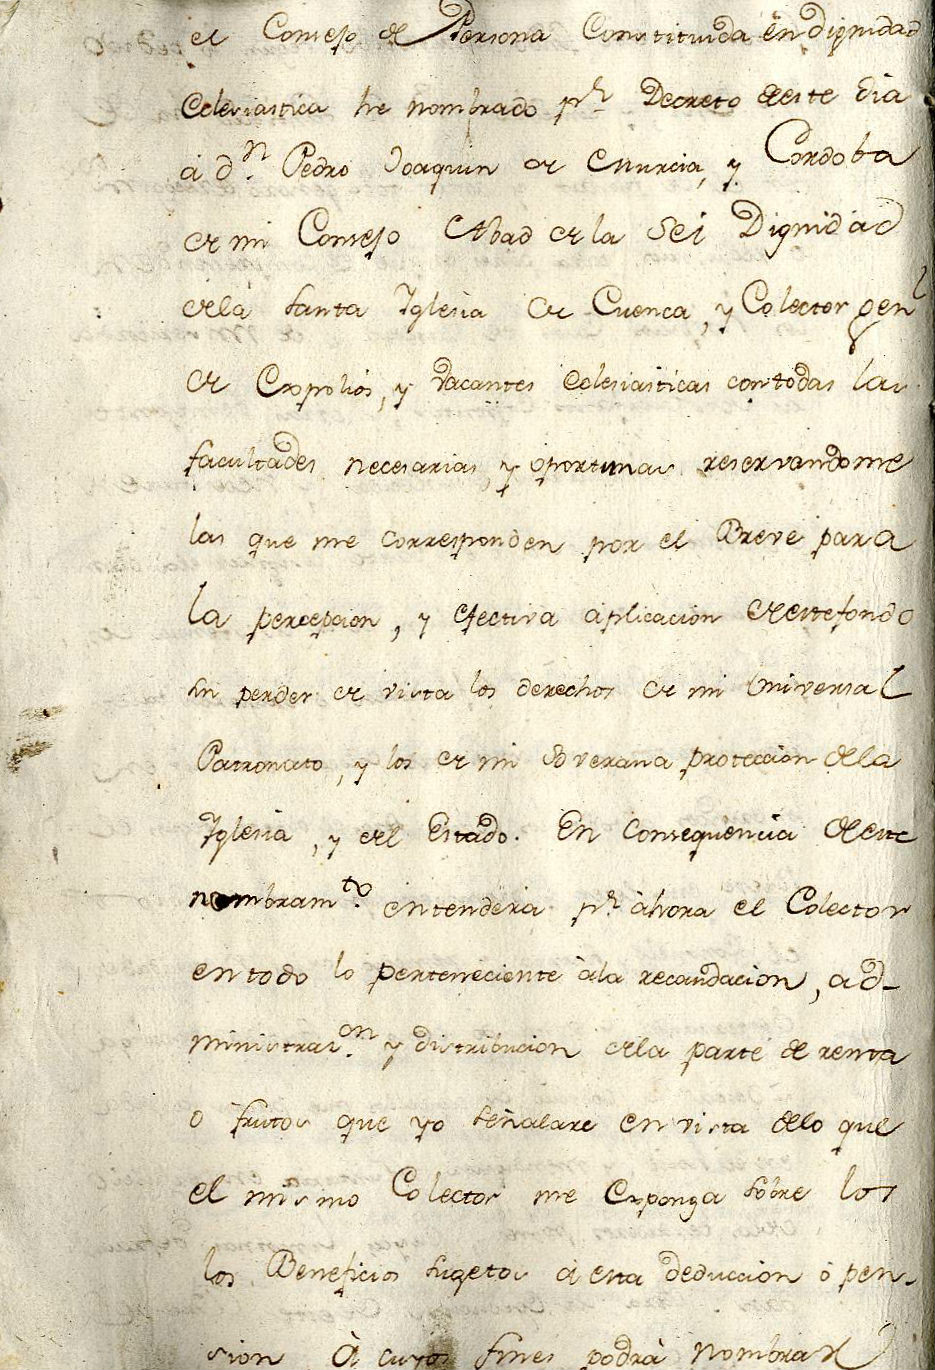 el Consejo de Persona Constituida en dignidad
Eclesiastica he nombrado pr. Decreto de este dia
á dn. Pedro Joaquin de Murcia, y Cordoba
de mi Consejo Abad de la Sei Dignidad
de la Santa Iglesia de Cuenca, y Colector genl
de Expolios, y vacantes Eclesiasticas con todas las
facultades necesarias, y oportunas reservandome
las que me corresponden por el Breve para
la percepcion, y efectiva aplicacion de este fondo
sin perder de vista los derechos de mi Universal
Patronato, y los de mi soverana proteccion de la
Iglesia, y del Estado. En consequencia de este
nombramto. entenderá pr. áhora el Colector
en todo lo perteneciente à la recaudacion, ad-
ministraion. y distribucion de la parte de renta
o frutos que yo señalare en vista de lo que
el mismo Colector me Exponga sobre los
los Beneficios sugetos á esta deduccion ò pen-
sion À cuyos fines podrà nombrar